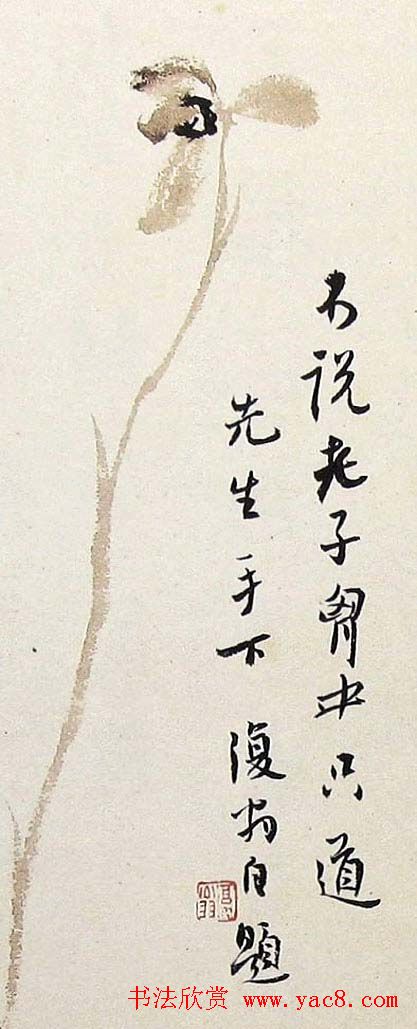 不说老子胷中只道
先生手下 復翁自題
书法欣赏 www.yac8.com